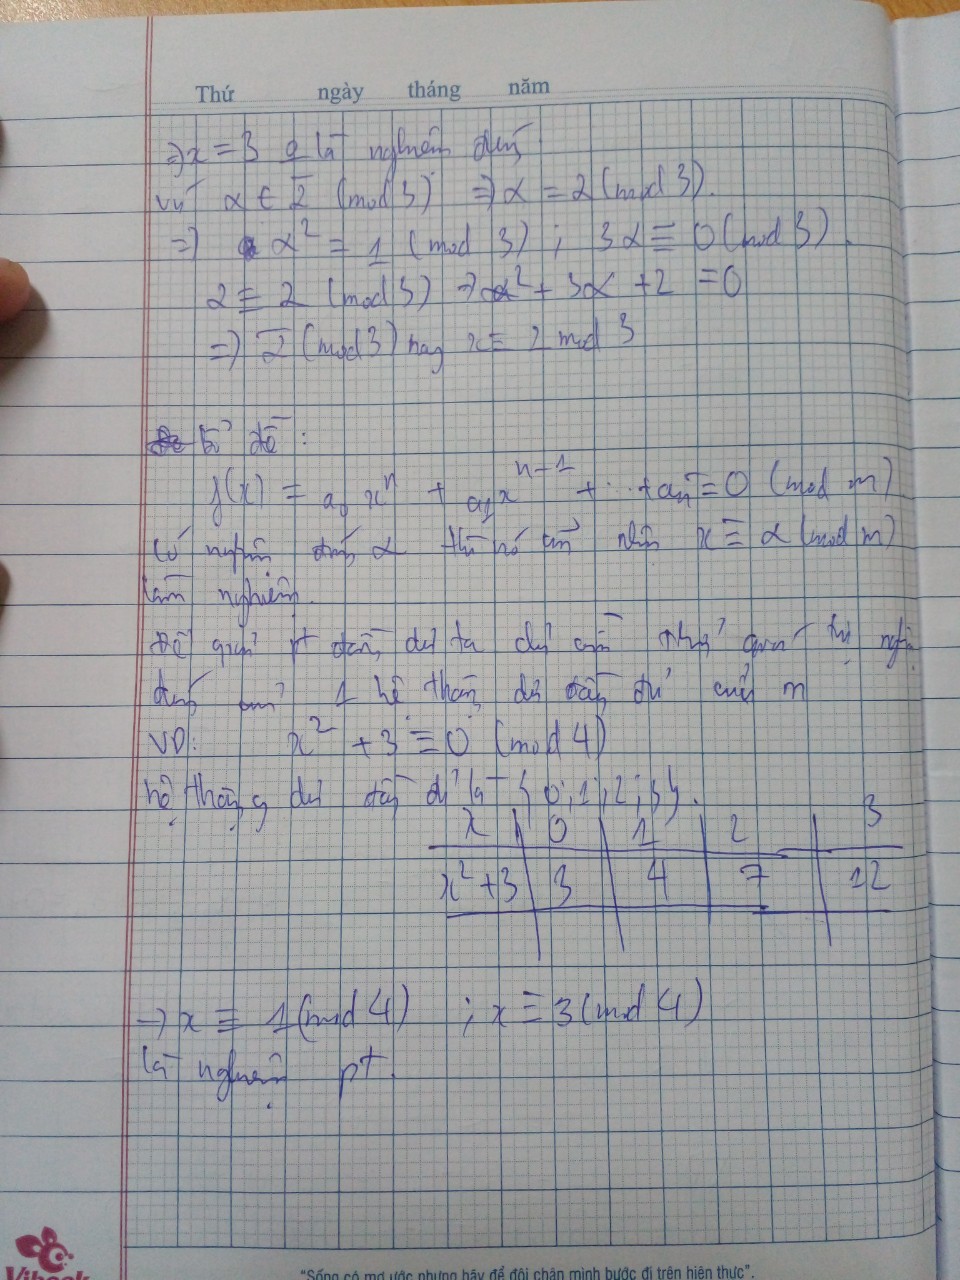 Thứ ngày tháng năm
⇒ x = 3 là nghiệm đúng
với α ∈ 2̅ (mod 3) ⇒ α = 2 (mod 3).
⇒ α² = 1 (mod 3) ; 3α ≡ 0 (mod 3).
2 ≡ 2 (mod 3) ⇒ α² + 3α + 2 = 0
⇒ 2̅ (mod 3) hay x ≡ 2 mod 3
Bổ đề :
f(x) = a₀ xⁿ + a₁ xⁿ⁻¹ + ... + aₙ ≡ 0 (mod m)
Có nghiệm đúng α thì nó nhận x ≡ α (mod m)
làm nghiệm.
Để giải pt đồng dư ta chỉ cần thử nghiệm
đúng 1 hệ thặng dư đầy đủ của m
VD: x² + 3 ≡ 0 (mod 4)
hệ thặng dư đầy đủ là {0;1;2;3}.
x 0 1 2 3
x² + 3 3 4 7 12
→ x ≡ 1 (mod 4) ; x ≡ 3 (mod 4)
là nghiệm pt.
"Sống có mơ ước nhưng hãy để đôi chân mình bước đi trên hiện thực".